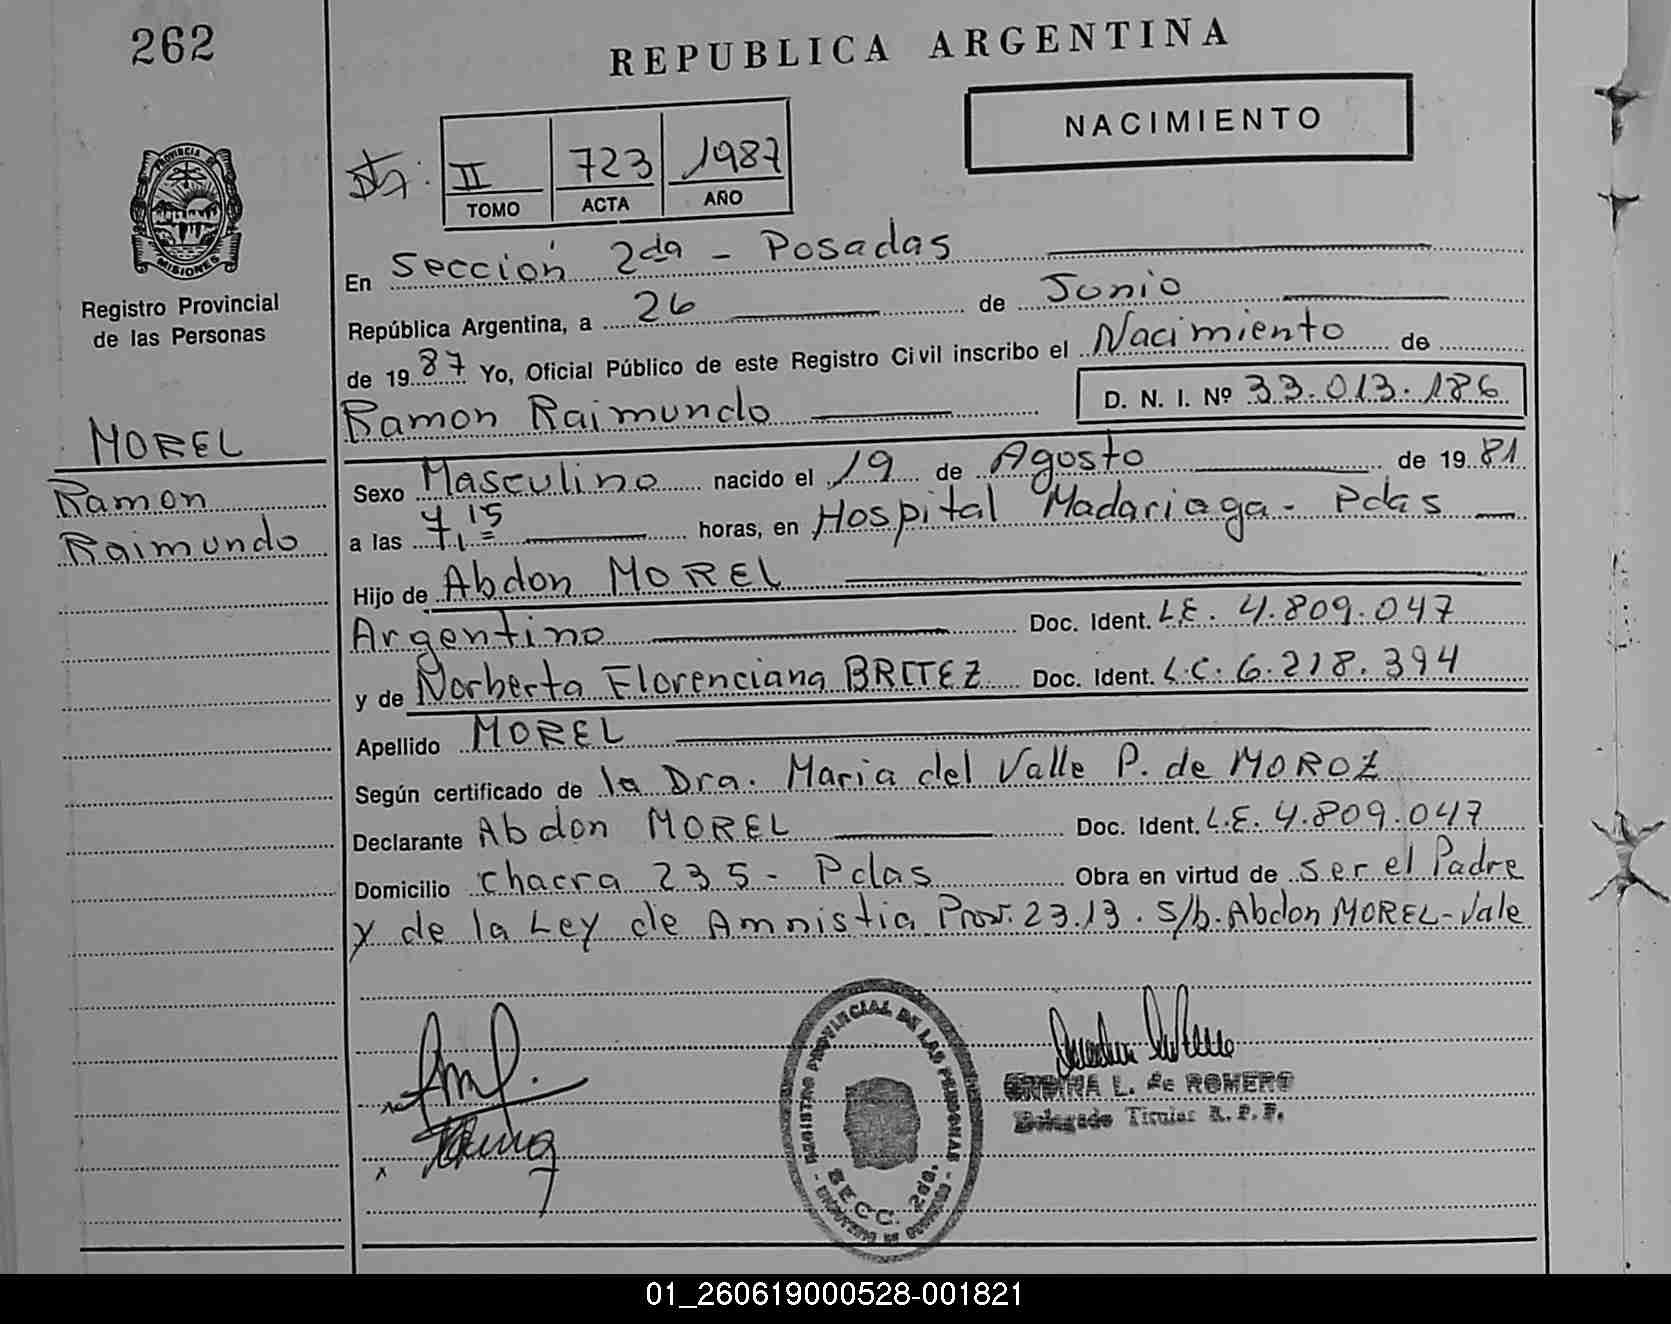 262
REPUBLICA ARGENTINA
NACIMIENTO
II 723 1987
TOMO ACTA AÑO
PROVINCIA DE
MISIONES
Registro Provincial
de las Personas
En Sección 2da - Posadas
República Argentina, a 26 de Junio
de 1987 Yo, Oficial Público de este Registro Civil inscribo el Nacimiento de
Ramon Raimundo D. N. I. Nº 33.013.186
MOREL
Ramon
Raimundo
Sexo Masculino nacido el 19 de Agosto de 1981
a las 7,15 horas, en Hospital Madariaga - Pdas
Hijo de Abdon MOREL
Argentino Doc. Ident. L.E. 4.809.047
y de Norberta Florenciana BRITEZ Doc. Ident. L.C. 6.218.394
Apellido MOREL
Según certificado de la Dra. Maria del Valle P. de MOROZ
Declarante Abdon MOREL Doc. Ident. L.E. 4.809.047
Domicilio chacra 235 - Pdas Obra en virtud de ser el Padre
y de la Ley de Amnistia Prov. 23.13. S/b. Abdon MOREL - Vale
REGISTRO PROVINCIAL DE LAS PERSONAS
SECC. 2da.
L. de ROMERO
Delegado Titular R. P. P.
01_260619000528-001821